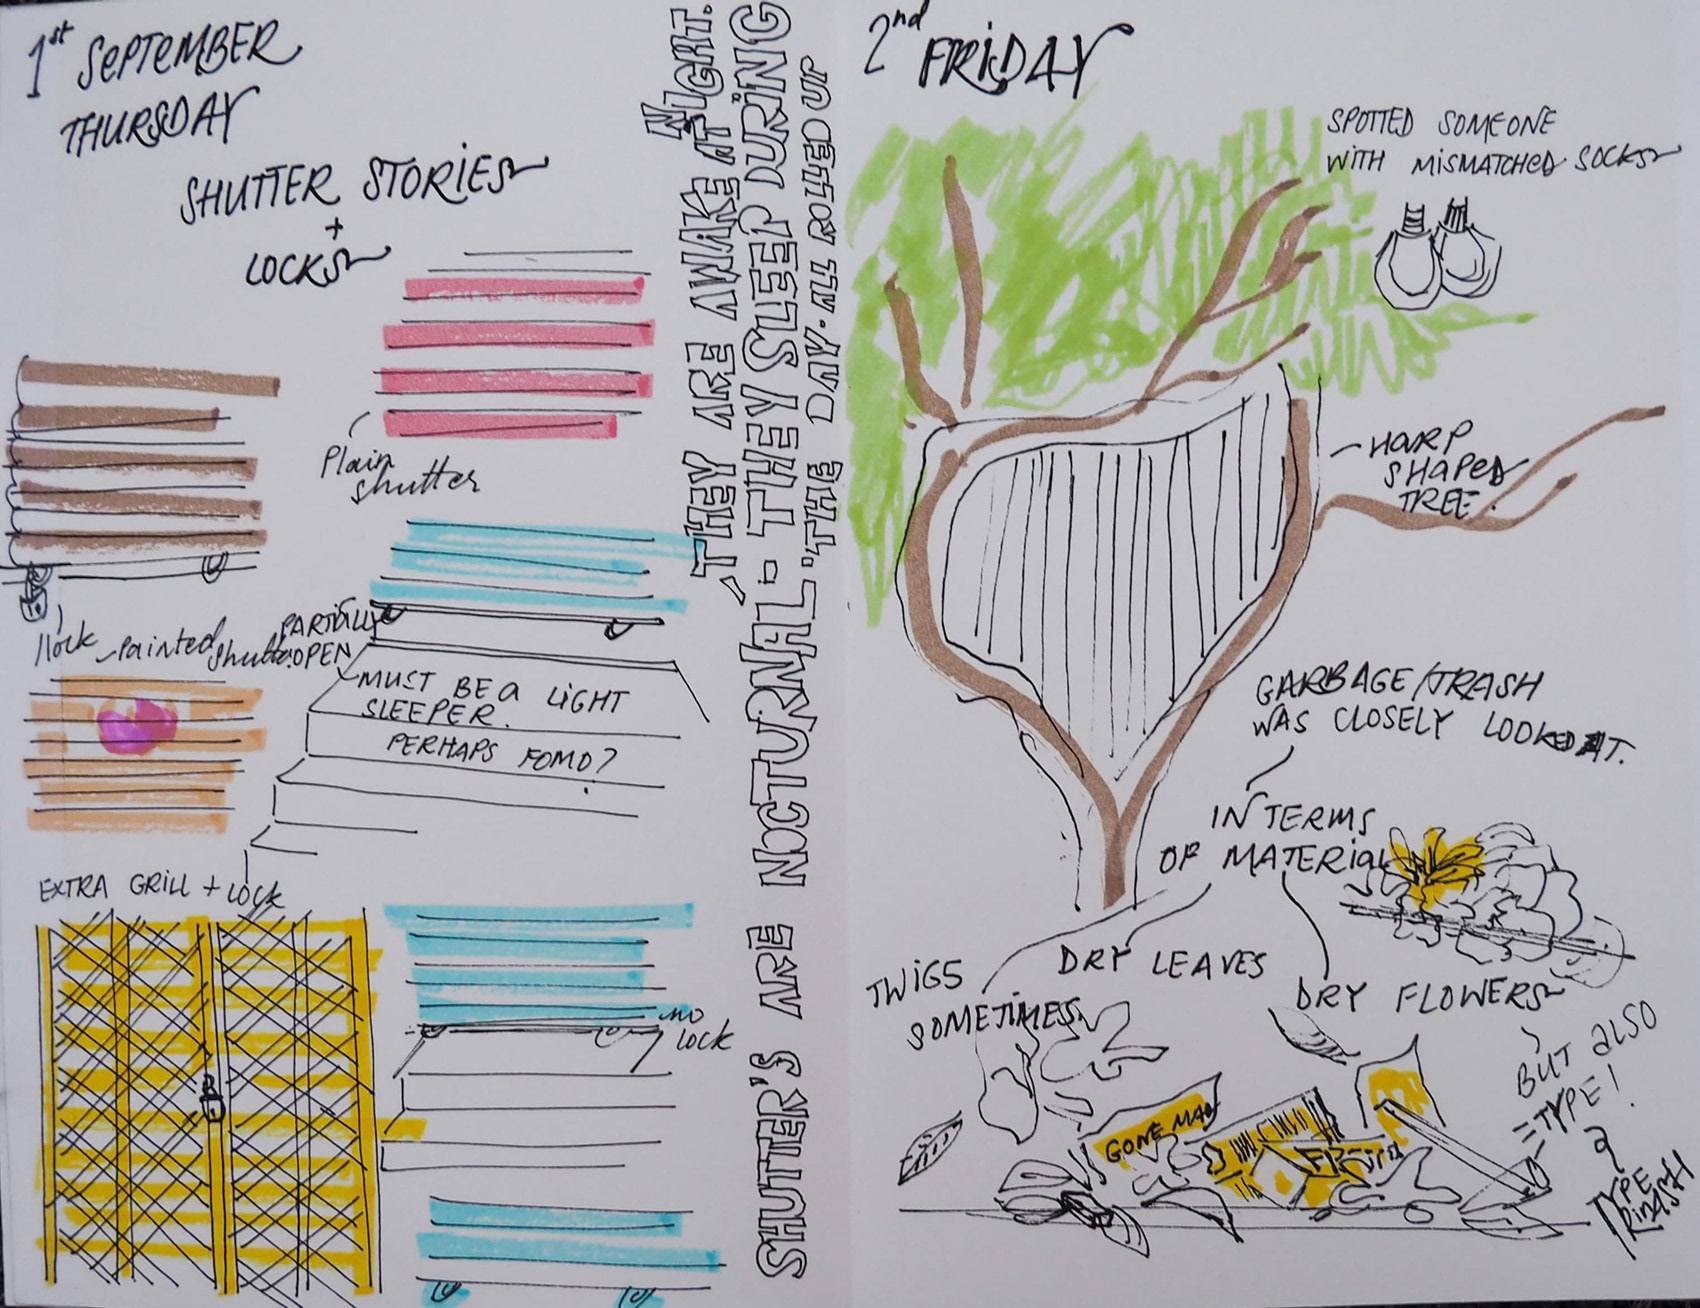 1st SEPTEMBER
THURSDAY
SHUTTER STORIES
+
LOCKS
Plain
shutter
lock
Painted
Shutter
PARTIALLY
OPEN
MUST BE a LIGHT
SLEEPER.
PERHAPS FOMO?
EXTRA GRILL + LOCK
NO
LOCK
SHUTTER'S ARE NOCTURNAL - THEY SLEEP DURING
THE DAY. ALL ROLLED UP
THEY ARE AWAKE AT NIGHT.
2nd FRIDAY
SPOTTED SOMEONE
WITH MISMATCHED SOCKS
HARP
SHAPED
TREE.
GARBAGE/TRASH
WAS CLOSELY LOOKED AT.
IN TERMS
OF MATERIAL
TWIGS
SOMETIMES
DRY LEAVES
DRY FLOWERS
BUT ALSO
TYPE!
GONE MAD